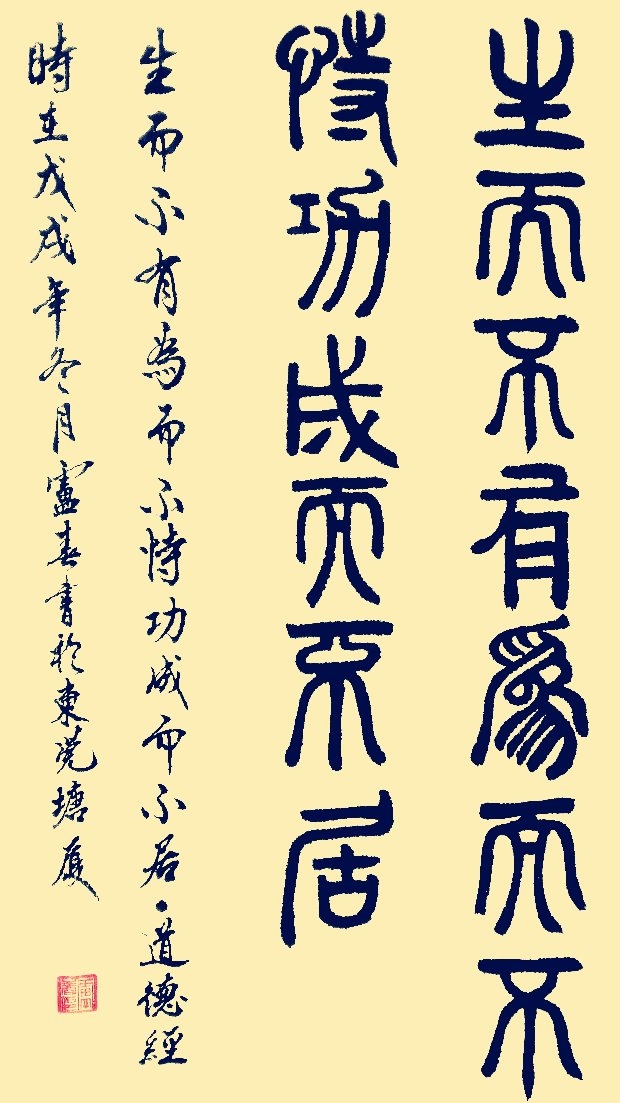 生而不有爲而不
恃功成而不居
生而不有為而不恃功成而不居·道德經
時在戊戌年冬月春書於東莞塘廈